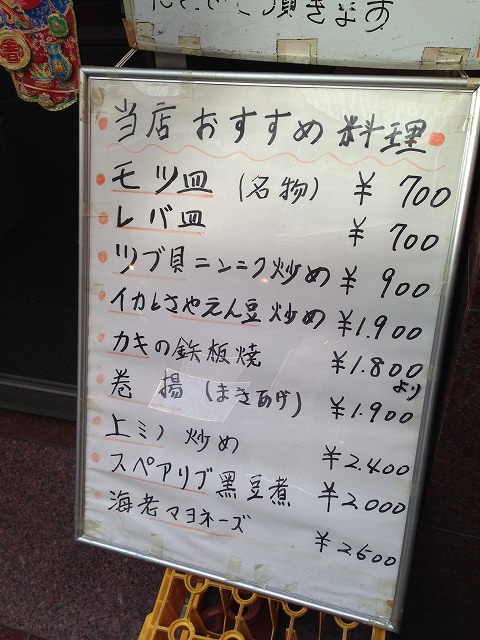 当店おすすめ料理
モツ皿 (名物) ¥700
レバ皿 ¥700
ツブ貝ニンニク炒め ¥900
イカとさやえん豆炒め ¥1.900
カキの鉄板焼 ¥1.800
より
巻揚 (まきあげ) ¥1.900
上ミノ炒め ¥2.400
スペアリブ黒豆煮 ¥2000
海老マヨネーズ ¥2600